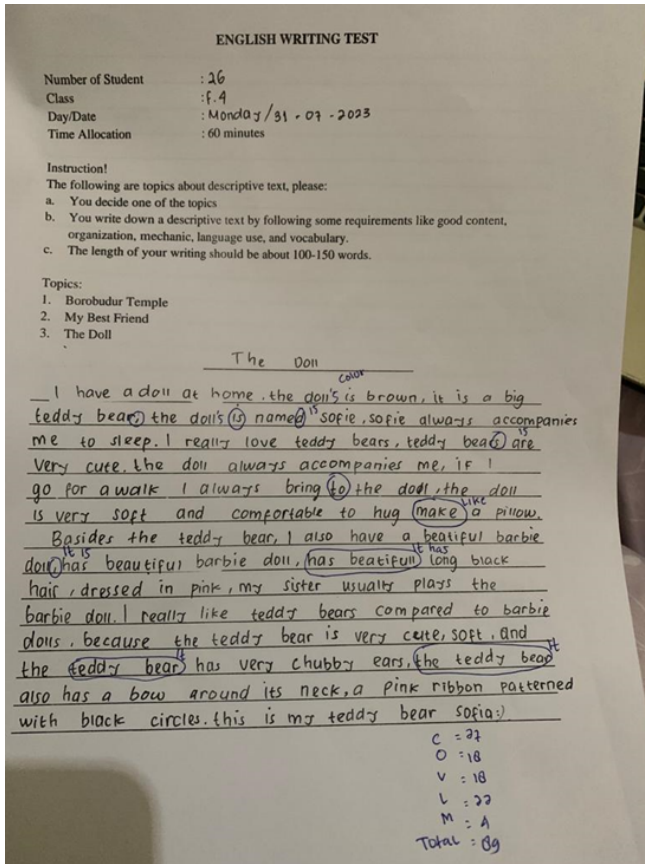 ENGLISH WRITING TEST
Number of Student : 26
Class : F.4
Day/Date : Monday/31-07-2023
Time Allocation : 60 minutes
Instruction!
The following are topics about descriptive text, please:
a. You decide one of the topics
b. You write down a descriptive text by following some requirements like good content,
organization, mechanic, language use, and vocabulary.
c. The length of your writing should be about 100-150 words.
Topics:
1. Borobudur Temple
2. My Best Friend
3. The Doll
The Doll
color
I have a doll at home. the doll's is brown, it is a big
is
teddy bear, the doll's is named sofie, sofie always accompanies
is
me to sleep. I really love teddy bears, teddy bears are
very cute. the doll always accompanies me, if I
go for a walk I always bring to the doll, the doll
like
is very soft and comfortable to hug make a pillow.
Basides the teddy bear, I also have a beatiful barbie
It is It has
doll, has beautiful barbie doll, has beatifull long black
hair, dressed in pink, my sister usually plays the
barbie doll. I really like teddy bears compared to barbie
dolls, because the teddy bear is very cute, soft, and
it it
the teddy bear has very chubby ears, the teddy bear
also has a bow around its neck, a pink ribbon patterned
with black circles. this is my teddy bear sofia:)
C = 27
O = 18
V : 18
L : 22
M : 4
Total : 89